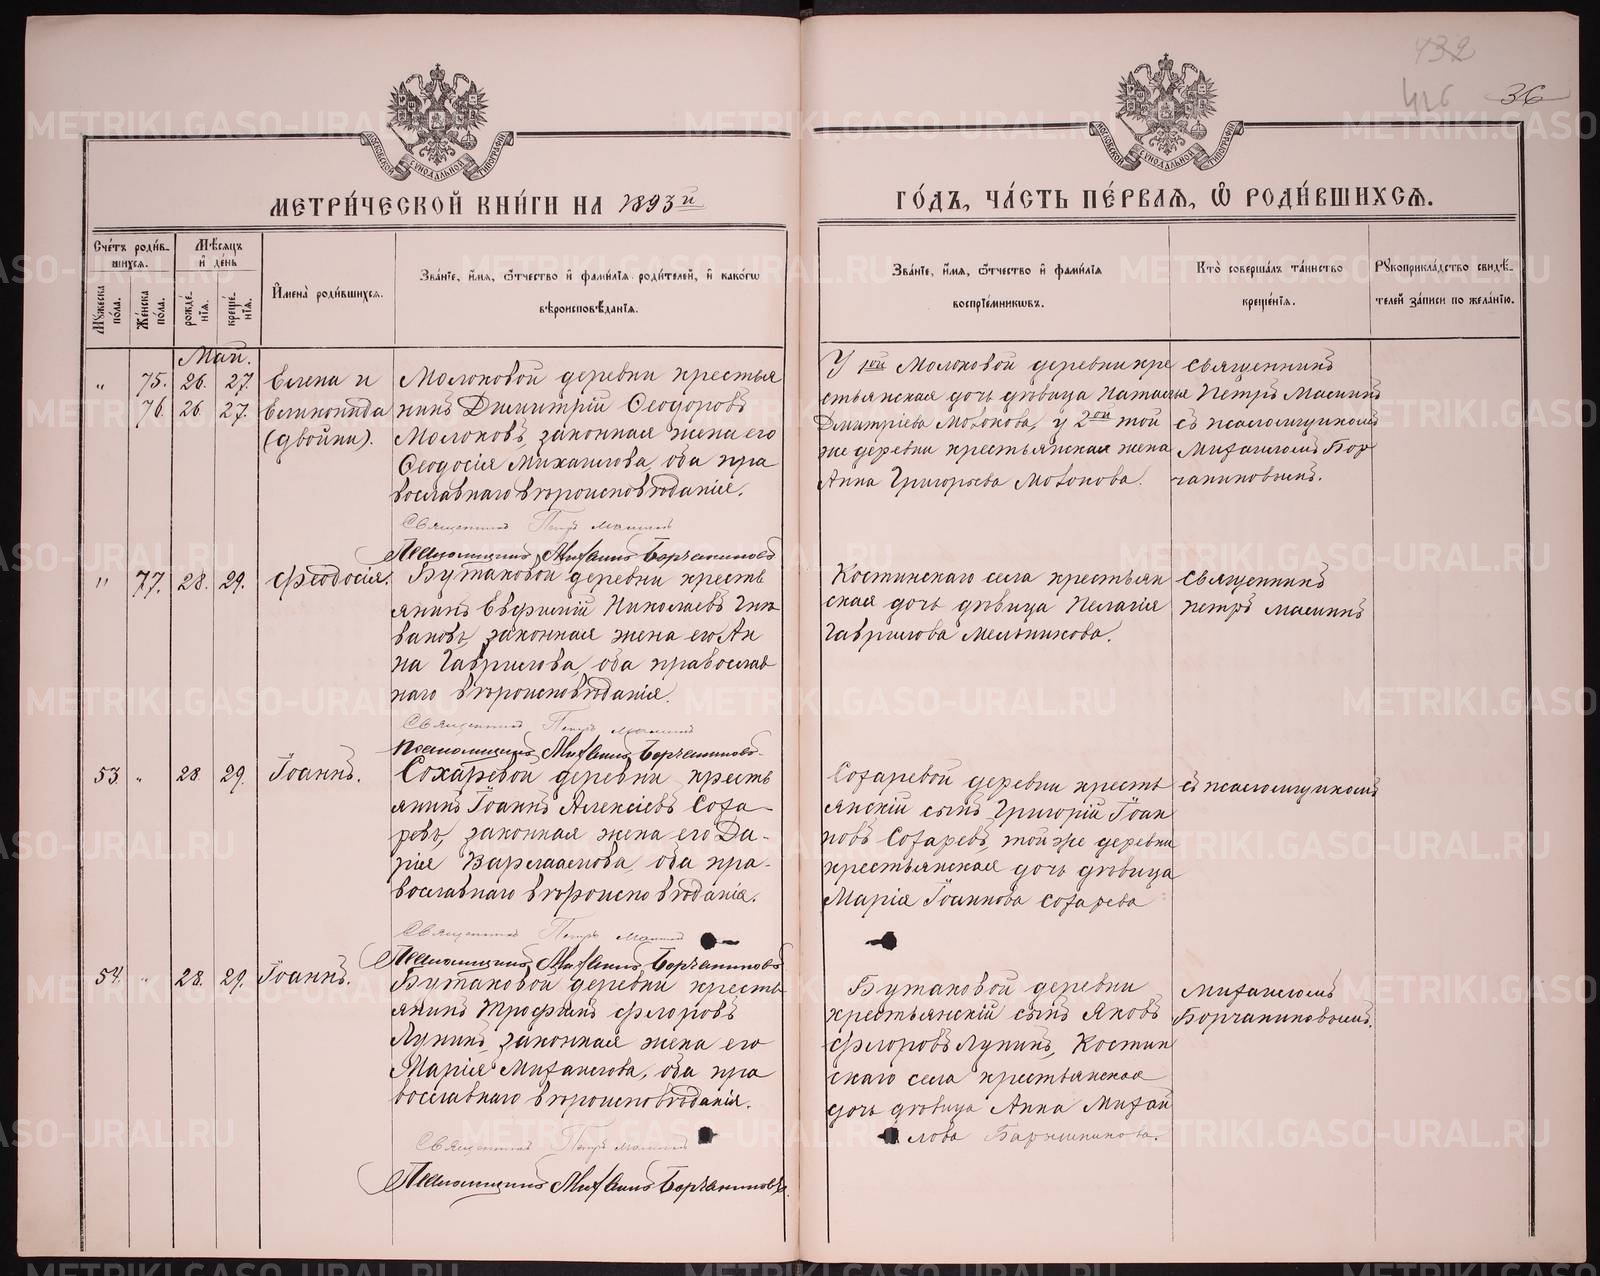 432
426
36
МОСКОВСКОЙ СѴНОДАЛЬНОЙ ТИПОГРАФІИ
МОСКОВСКОЙ СѴНОДАЛЬНОЙ ТИПОГРАФІИ
МЕТРИ́ЧЕСКОЙ КНИ́ГИ НА 1893й
ГО́ДЪ, ЧА́СТЬ ПЕ́РВАѦ, Ѡ РОДИ́ВШИХСѦ.
Сче́тъ роди́в-
шихсѧ.
Мѣ́сѧцъ
и҆ де́нь
Мꙋ́жеска по́ла.
Же́нска по́ла.
рожде́нїѧ.
креще́нїѧ.
И҆мена̀ роди́вшихсѧ.
Зва́нїе, и҆́мѧ, ѻ҆́тчество и҆ фами́лїѧ роди́телей, и҆ како́гѡ
вѣроисповѣ́данїѧ.
Зва́нїе, и҆́мѧ, ѻ҆́тчество и҆ фами́лїѧ
воспрїе́мникѡвъ.
Кто̀ соверша́лъ та́инство
креще́нїѧ.
Рꙋкоприкла́дство свидѣ́-
телей за́писи по жела́нїю.
Май.
„ 75. 26. 27. Елена и
76. 26. 27. Еликонида
(двойни).
Молоковой деревни крестья
нинъ Димитрій Ѳеодоровъ
Молоковъ, законная жена его
Ѳеодосія Михаилова, оба пра
вославнаго вѣроисповѣданія.
Священникъ Петръ Маминъ
Псаломщикъ Михаилъ Борчаниновъ
У 1ой Молоковой деревни кре
стьянская дочь дѣвица Наталья
Дмитріева Молокова, у 2ой той
же деревни крестьянская жена
Анна Григорьева Молокова.
Священникъ
Петръ Маминъ
съ псаломщикомъ
Михаиломъ Бор
чаниновымъ.
„ 77. 28. 29. Феодосія.
Бутаковой деревни кресть
янинъ Евфимій Николаевъ
законная жена его Ан
на Гаврилова, оба православ
наго вѣроисповѣданія.
Священникъ Петръ Маминъ
Псаломщикъ Михаилъ Борчаниновъ.
Костинскаго села крестьян
ская дочь дѣвица Пелагія
Гаврилова Мельникова.
Священникъ
Петръ Маминъ
53 „ 28. 29. Іоаннъ.
Сохаревой деревни кресть
янинъ Іоаннъ Алексіевъ Соха-
ревъ, законная жена его Да-
рія Варлаамова, оба пра-
вославнаго вѣроисповѣданія.
Священникъ Петръ Маминъ
Псаломщикъ Михаилъ Борчаниновъ
Сохаревой деревни кресть
янскій сынъ Григорій Іоан
новъ Сохаревъ, той же деревни
крестьянская дочь дѣвица
Марія Іоаннова Сохарева
съ псаломщикомъ
54. „ 28. 29. Іоаннъ.
Бутаковой деревни кресть
янинъ Трофимъ Флоровъ
Лупинъ, законная жена его
Марія Михаилова, оба пра
вославнаго вѣроисповѣданія.
Священникъ Петръ Маминъ
Псаломщикъ Михаилъ Борчаниновъ.
Бутаковой деревни
крестьянскій сынъ Яковъ
Флоровъ Лупинъ, Костин
скаго села крестьянская
дочь дѣвица Анна Михаи
лова Барышникова.
Михаиломъ
Борчаниновымъ.
METRIKI.GASO-URAL.RU